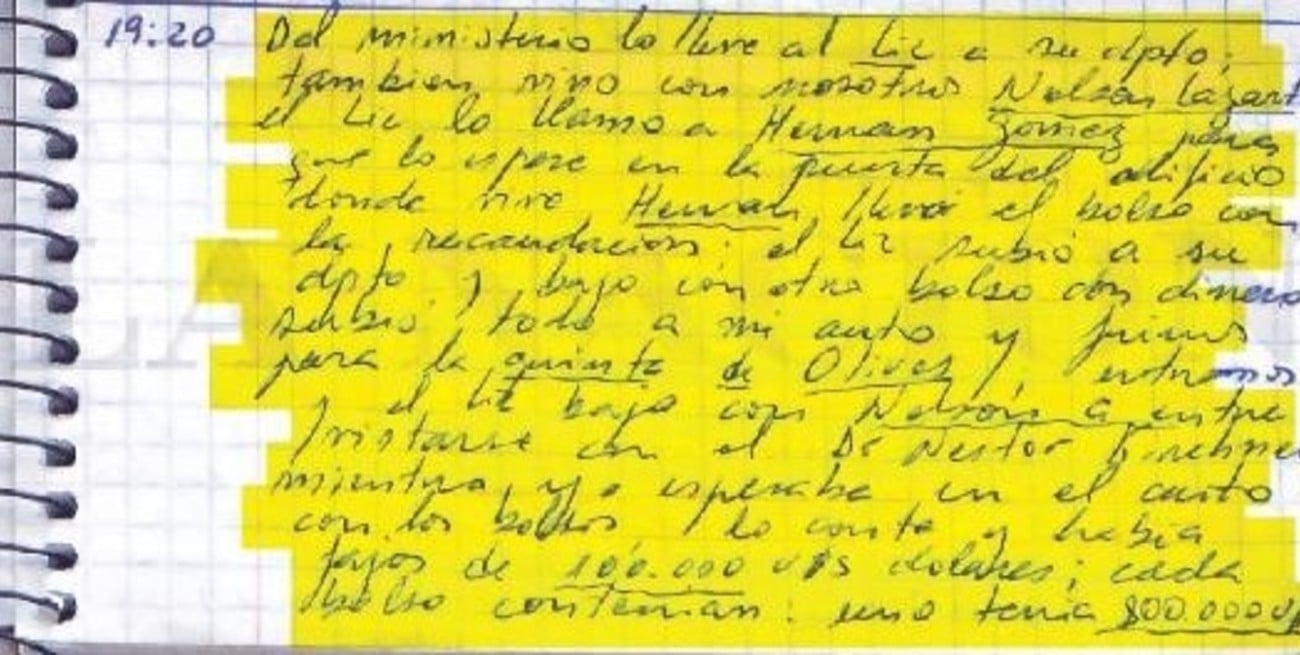 19:20 Del ministerio lo lleve al Lic a su dpto;
tambien vino con nosotros Nelson Lazar
el Lic lo llamo a Hernan Gomez para
que lo espere en la puerta del edificio
donde vive Hernan, llevó el bolso con
la recaudacion; el Lic subió a su
dpto y bajo con otro bolso con dinero
subió todo a mi auto y fuimos
para la quinta de Olivos, entramos
y el Lic bajo con Nelson a entre
vistarse con el Dr Nestor Kirchne
mientras yo esperaba en el auto
con los bolsos, lo conte y había
fajos de 100.000 U$S dolares; cada
bolso contenian: uno tenia 800.000 U